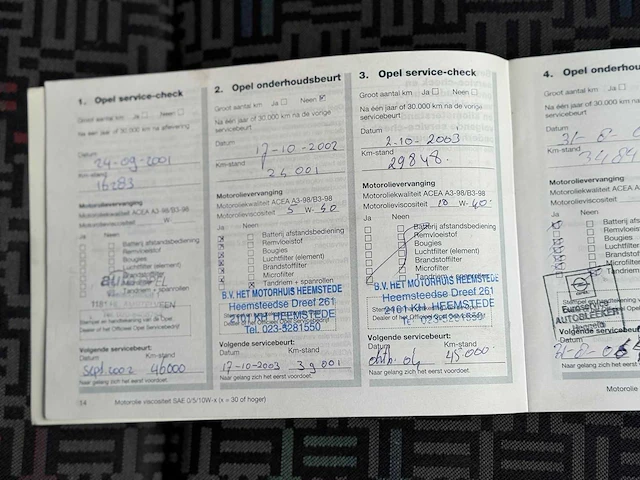 1. Opel service-check
Groot aantal km Ja Neen
Na één jaar of 30.000 km na aflevering
Datum
24-09-2001
Km-stand
16283
Motorolievervanging
Motoroliekwaliteit ACEA A3-98/B3-98
Motorolieviscositeit W-
Ja Neen
Batterij afstandsbediening
Remvloeistof
Bougies
Luchtfilter (element)
Brandstoffilter
Microfilter
Stempel en handtekening van de Opel
Dealer of het Officieel Opel Servicebedrijf
Volgende servicebeurt
Datum Km-stand
Sept 2002 46000
Naar gelang zich het eerst voordoet.
54 Motorolie viscositeit SAE 0/5/10W-x (x = 30 of hoger)
2. Opel onderhoudsbeurt
Groot aantal km Ja Neen
Na één jaar of 30.000 km na de vorige
servicebeurt
Datum
17-10-2002
Km-stand
24 001
Motorolievervanging
Motoroliekwaliteit ACEA A3-98/B3-98
Motorolieviscositeit 5 W- 40
Ja Neen
Batterij afstandsbediening
Remvloeistof
Bougies
Luchtfilter (element)
Brandstoffilter
Microfilter
Tandriem + spanrollen
B.V. HET MOTORHUIS HEEMSTEDE
Heemsteedse Dreef 261
2101 KH HEEMSTEDE
Tel. 023-5281550
Volgende servicebeurt:
Datum Km-stand
17-10-2003 39 001
Naar gelang zich het eerst voordoet.
3. Opel service-check
Groot aantal km Ja Neen
Na één jaar of 30.000 km na de vorige
servicebeurt
Datum
2-10-2003
Km-stand
29848.
Motorolievervanging
Motoroliekwaliteit ACEA A3-98/B3-98
Motorolieviscositeit 10 W- 40
Ja Neen
Batterij afstandsbediening
Remvloeistof
Bougies
Luchtfilter (element)
Brandstoffilter
Microfilter
Tandriem + spanrollen
B.V. HET MOTORHUIS HEEMSTEDE
Heemsteedse Dreef 261
2101 KH HEEMSTEDE
Tel. 023-5281550
Volgende servicebeurt:
Datum Km-stand
okt. 04 45000
Naar gelang zich het eerst voordoet.
4. Opel onderhou
Groot aantal km
Na één jaar of 30.000 km n
servicebeurt
Datum
Km-stand
Motorolievervanging
Motoroliekwaliteit ACEA A
Motorolieviscositeit
Ja Neen
Batterij a
Remvloei
Bougies
Luchtfilte
Brandsto
Microfilte
Tandriem
AUTOBLEEKER
Hengelo
Volgende servicebeurt
Datum
Naar gelang zich het eer
Motorolie